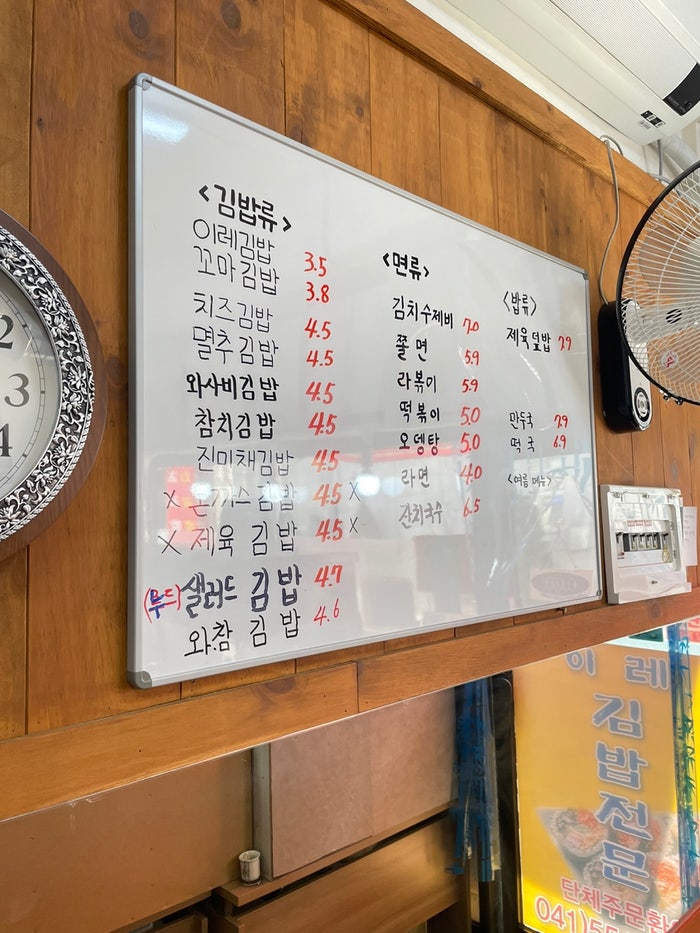 <김밥류>
이레김밥 3.5
꼬마김밥 3.8
치즈김밥 4.5
멸추김밥 4.5
와사비김밥 4.5
참치김밥 4.5
진미채김밥 4.5
X 돈까스김밥 4.5 X
X 제육 김밥 4.5 X
(누드) 샐러드 김밥 4.7
와.참 김밥 4.6
<면류>
김치수제비 7.0
쫄면 5.9
라볶이 5.9
떡볶이 5.0
오뎅탕 5.0
라면 4.0
잔치국수 6.5
<밥류>
제육덮밥 7.9
만두국 7.9
떡국 6.9
<여름메뉴>
2
3
4
이레
김밥전문
단체주문환
041)55